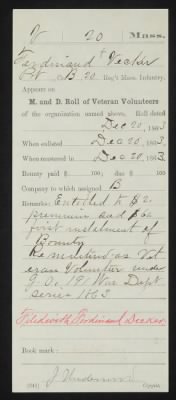 V 20 Mass.
Ferdinand Vecker
Pvt. Co. B. 20 Reg't Mass. Infantry.
Appears on
M. and D. Roll of Veteran Volunteers
of the organization named above. Roll dated
Dec 20, 1863
When enlisted Dec 20, 1863.
When mustered in Dec 20, 1863.
Bounty paid $ 100; due $ 100
Company to which assigned B
Remarks: Entitled to $2
premium and $60
first instalment of
Bounty
Re mustered as Vet
eran Volunteer under
G. O. 191 War Dept
series 1863
Filed with Ferdinand Decker
Book mark:
(341) Copyist.